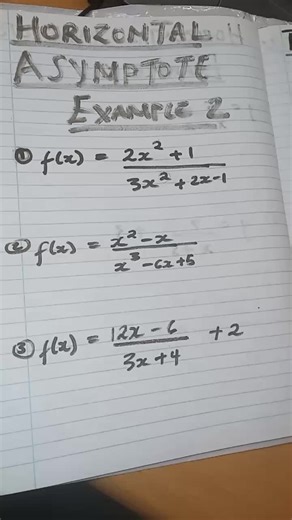 HORIZONTAL
ASYMPTOTE
EXAMPLE 2
① f(x) = 2x² + 1 / 3x² + 2x - 1
② f(x) = x² - x / x³ - 6x + 5
③ f(x) = 12x - 6 / 3x + 4 + 2